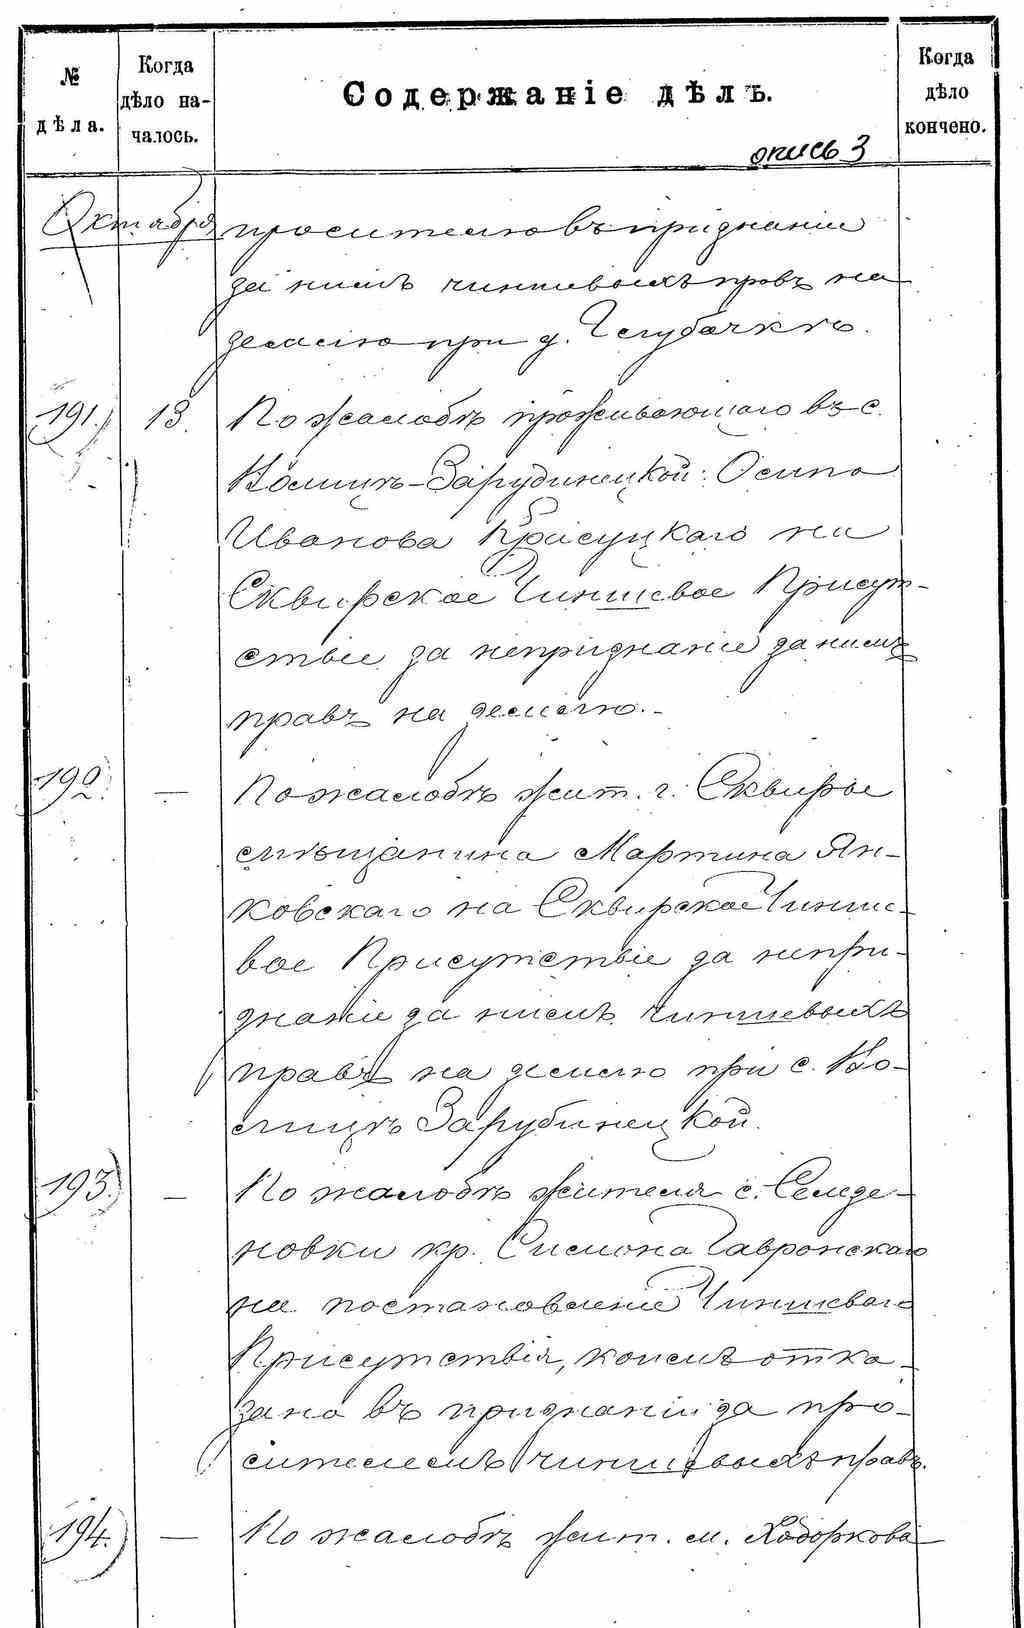 № дѣла.
Когда дѣло на-
чалось.
Содержаніе дѣлъ.
Когда дѣло кончено.
опись 3
Октября
просителю въ признаніи
за нимъ чиншевыхъ правъ на
землю при д. Голубячкѣ.
191. 13. По жалобѣ проживающаго въ с.
Волицѣ-Зарубинецкой: Осипа
Иванова Красуцкаго на
Сквирское Чиншевое Присут-
ствіе за непризнаніе за нимъ
правъ на землю.-
192. — По жалобѣ жит. г. Сквиры
мѣщанина Мартина Ян-
ковскаго на Сквирское Чинше-
вое Присутствіе за непри-
знаніе за нимъ чиншевыхъ
правъ на землю при с. Во-
лицѣ Зарубинецкой.
193. — По жалобѣ жителя с.
новки кр. Симона Гавронскаго
на постановленіе Чиншеваго
Присутствія, коимъ отка-
зано въ признаніи за про-
сителемъ чиншевыхъ правъ.
194. — По жалобѣ жит. м. Ходоркова